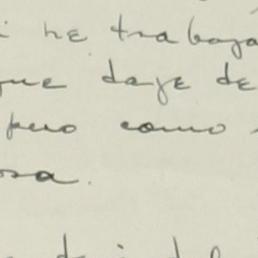 i he trabaja
que daye de
pero como
osa.